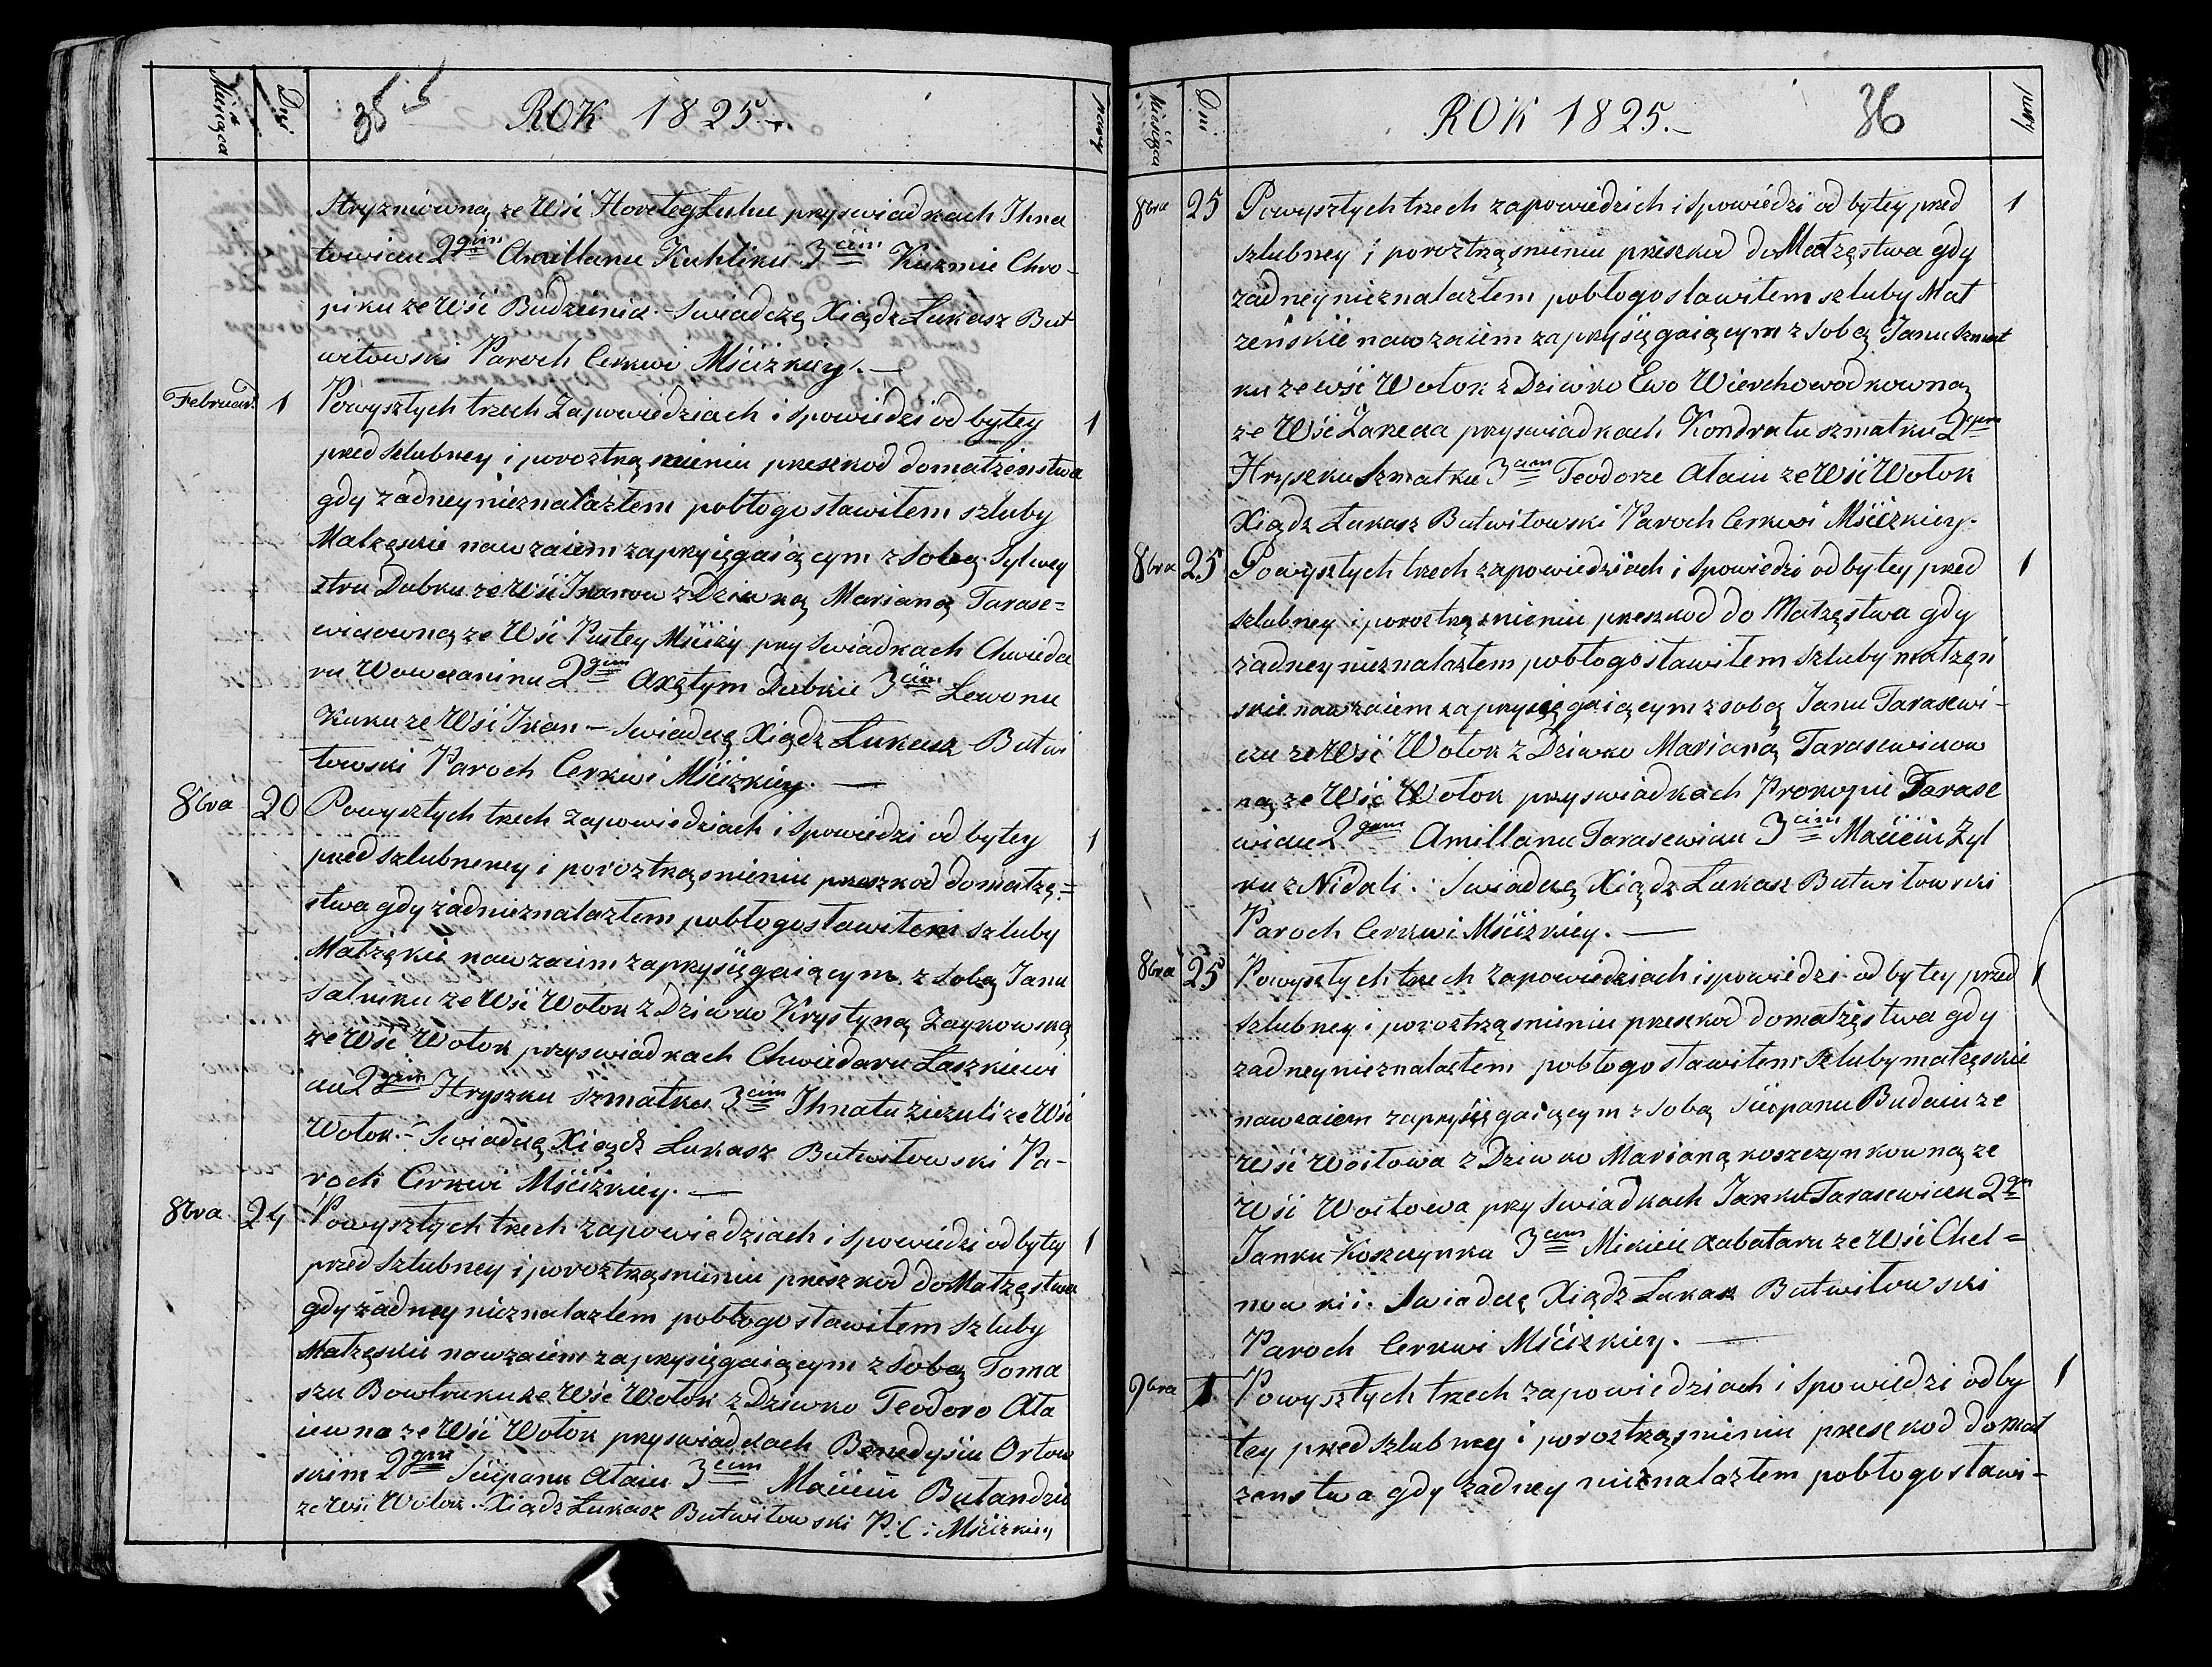 Miesiąca
Dni
35
ROK 1825.
pary
Stryzniowną ze Wsi Horeleg Luhu przy swiadkach Ihna
towiczu 2gim Amillanu Kuhliku 3cim Kuzmie Chro-
piku ze Wsi Budzienia. Swiadczę Xiądz Łukasz But
witowski Paroch Cerkwi Mściżkiey.—
Februar. 1 Powyszłych trzech Zapowiedziach i spowiedzi odbytey 1
przed szlubney i poroztrząsnieniu przeszkod do małzenstwa
gdy zadney nieznalazłem pobłogosławiłem szluby
Małzęskie nawzaiem zaprzysięgaiącym z sobą Sylwey
stru Dubku ze Wsi Ikanow z Dziewką Marianą Tarase=
wiczowną ze Wsi Pustey Mściży przy Swiadkach Chwieda
ru Woweraninu 2gim Axętym Dubku 3cim Lewonu
Kuku ze Wsi Ikan – Swiadczę Xiądz Łukasz Butwi
towski Paroch Cerkwi Mściżkiey. —
8bra 20 Powyszłych trzech zapowiedziach i spowiedzi odbytey 1
przed szlubneney i poroztrząsnieniu przeszkod do małzę=
stwa gdy zadnieznalazłem pobłogosławiłem szluby
Małzękie nawzaiem zaprzysięgaiącym z sobą Janu
Salniku ze Wsi Wołok z Dziewko Krystyną Zaykowską
ze Wsi Wołok przy swiadkach Chwiedaru Laszkiewi
czu 2gim Hryszku Szmatku 3cim Ihnatu Ziezuli ze Wsi
Wołok.– Swiadczę Xiądz Łukasz Butwitowski Pa-
roch Cerkwi Mściżkiey. —
8bra 24 Powyszłych trzech zapowiedziach i spowiedzi odbytey 1
przed szlubney i poroztrząsnieniu przeszkod do Małzęstwa
gdy żadney nieznalazłem pobłogosławiłem szluby
Małzęskie nawzaiem zaprzysięgaiącym z sobą Toma
szu Bowtruku ze Wsi Wołok z Dziewko Teodoro Ała
iewno ze Wsi Wołok przy swiadkach Benedysiu Orłow
skim 2gim Sciepanu Ałaiu 3cim Macieiu Butandzie
ze Wsi Wołok. Xiądz Łukasz Butwitowski P: C: Mściżkiey
Miesiąca
Dni
ROK 1825.
36
pary
8bra 25 Powyszłych trzech zapowiedzich i spowiedzi odbytey przed 1
szlubney i poroztrząsnieniu przeszkod do Małzęstwa gdy
zadney nieznalazłem pobłogosławiłem szluby Mał
zeńskie nawzaiem zaprzysięgaiącym z sobą Janu Szmat
ku ze wsi Wołok z Dziewko Ewo Wierchowodkowną
ze Wsi przy swiadkach Kondratu szmatku 2gim
Hryszku Szmatku 3cim Teodorze Ałaiu ze Wsi Wołok
Xiądz Łukasz Butwitowski Paroch Cerkwi Mściżkiey.
8bra 25 Powyszłych trzech zapowiedziach i spowiedzi odbytey przed 1
szlubney i poroztrząsnieniu przeszkod do Małzęstwa gdy
zadney nieznalazłem pobłogosławiłem szluby małzęń
skie nawzaiem zaprzysięgaiącym z sobą Janu Tarasewi-
czu ze Wsi Wołok z Dziewko Marianą Tarasewiczow
ną ze Wsi Wołok przy swiadkach Prokopie Tarase
wiczu 2gim Amillanu Tarasewiczu 3cim Macieiu Zyl
ku z Nidali. Swiadczę Xiądz Łukasz Butwitowski
Paroch Cerkwi Mściżkiey. —
8bra 25 Powyszłych trzech zapowiedziach i spowiedzi odbytey przed 1
szlubney i poroztrząsnieniu przeszkod do małzęstwa gdy
zadney nieznalazłem pobłogosławiłem szluby małzęskie
nawzaiem zaprzysięgaiącym z sobą Sciepanu Budaiu ze
Wsi Woitowa z Dziewko Marianą koszczynkowną ze
Wsi Woitowa przy Swiadkach Janku Tarasewiczu 2gim
Janku Koszczynku 3cim Mikicie Kabataru ze Wsi Cheł=
nowkii. Swiadczę Xiądz Łukasz Butwitowski
Paroch Cerkwi Mściżkiey. —
9bra 1 Powyszłych trzech zapowiedziach i spowiedzi odby 1
tey przed szlubney i poroztrząsnieniu przeszkod do mał
zenstwa gdy zadney nieznalazłem pobłogosławi-